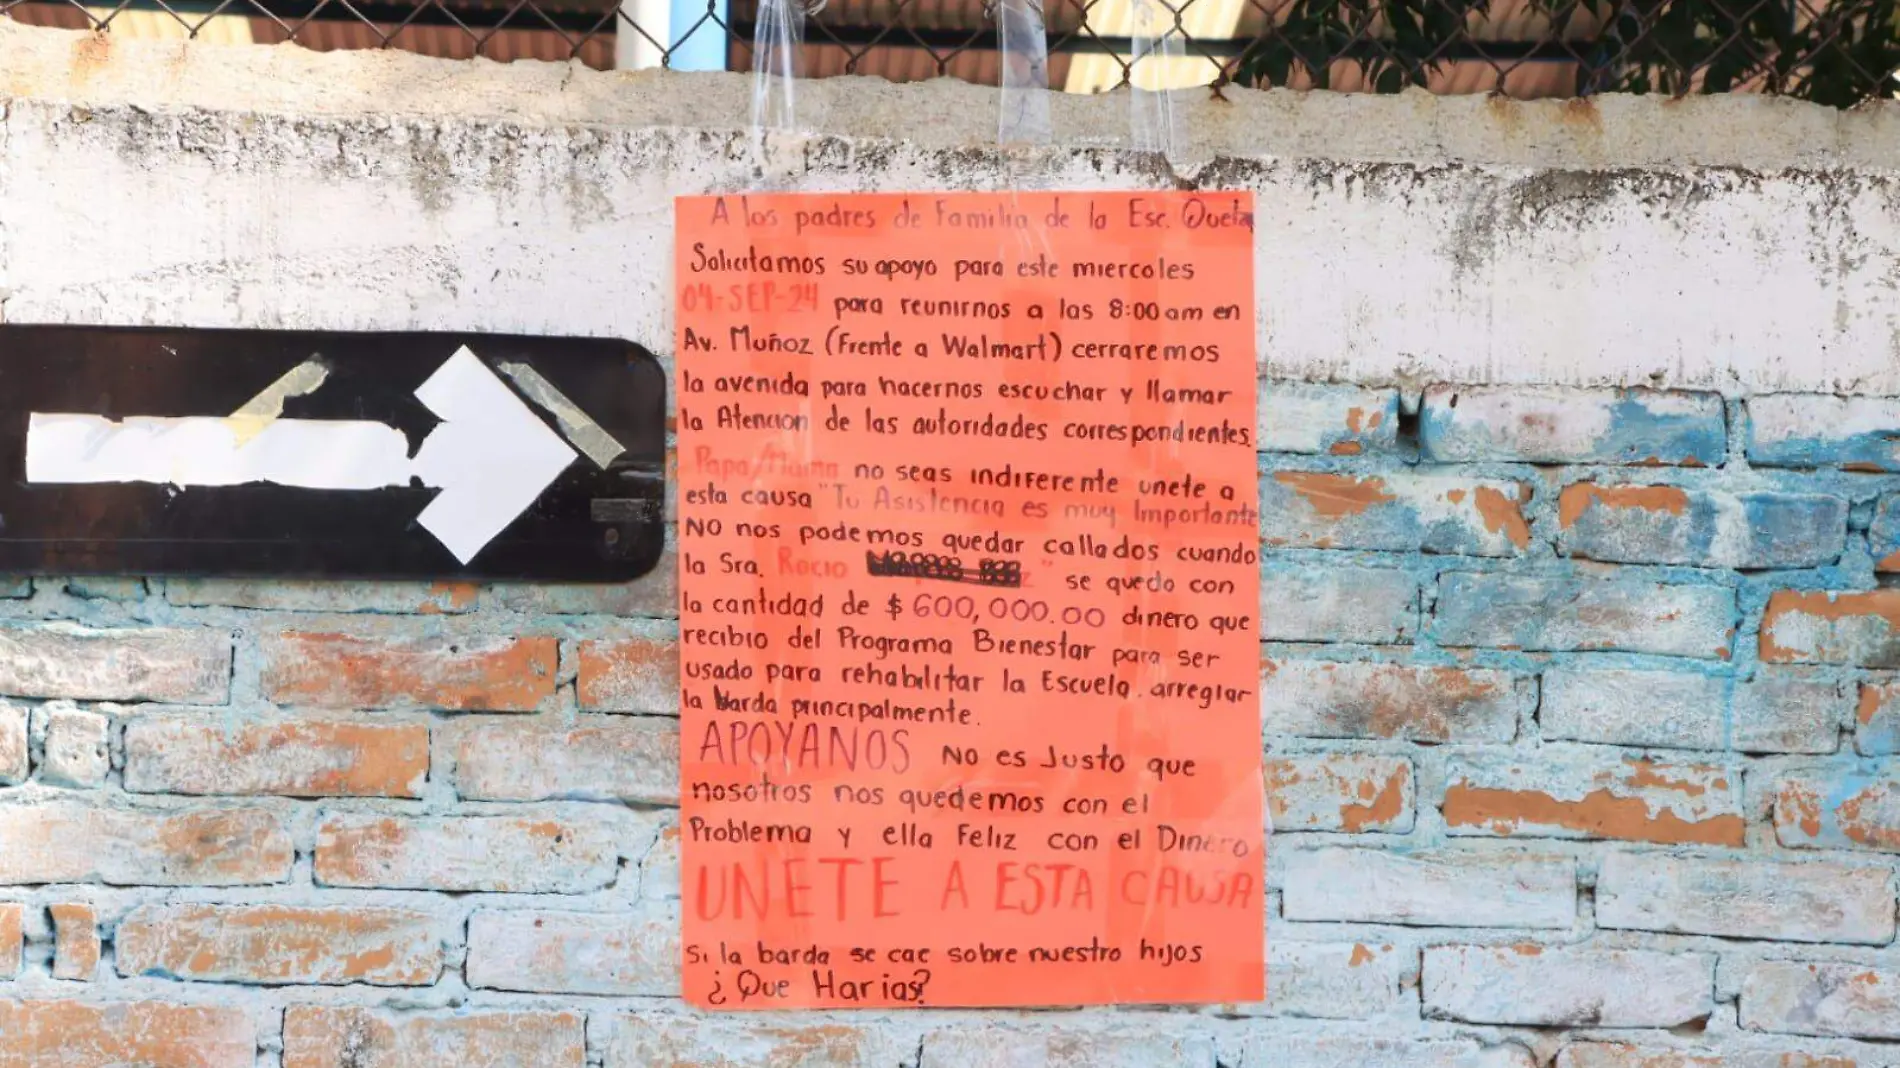 A los padres de Familia de la Esc. Queta
Solicitamos su apoyo para este miercoles
04-SEP-24 para reunirnos a las 8:00 am en
Av. Muñoz (Frente a Walmart) cerraremos
la avenida para hacernos escuchar y llamar
la Atencion de las autoridades correspondientes.
Papa/Mama no seas indiferente unete a
esta causa "Tu Asistencia es muy Importante
NO nos podemos quedar callados cuando
la Sra. Rocio " se quedo con
la cantidad de $ 600,000.00 dinero que
recibio del Programa Bienestar para ser
usado para rehabilitar la Escuela. arreglar
la barda principalmente.
APOYANOS No es Justo que
nosotros nos quedemos con el
Problema y ella Feliz con el Dinero
UNETE A ESTA CAUSA
Si la barda se cae sobre nuestro hijos
¿Que Harias?